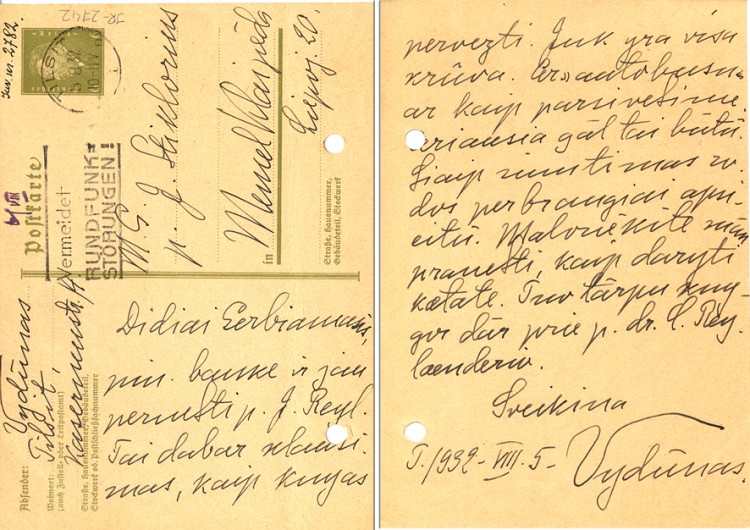 Inv. nr. 2782.
JR-2742
6/VIII
Postkarte
Vermeidet
RUNDFUNK-
STÖRUNGEN!
M. S. J. Stiklorius
p. J. Stiklorius
in Memel Klaipėda
Liepoj 20.
Straße, Hausnummer,
Gebäudeteil, Stockwerk
Absender: Vydūnas
Tilsit,
Wohnort:
(auch Zustell- oder Leitpostamt)
Kasernenstr. 14
Straße, Hausnummer, Gebäudeteil,
Stockwerk od. Postschließfachnummer
Didiai Gerbiamasis,
banke ir jau
pernešti p. J. Reyl.
Tai dabar klausi-
mas, kaip knygas
pervezti. Juk yra visa
krūva. Ar autobusu
ar kaip parsivešime.
geriausia gal tai būtų.
Šiaip siuntimas ro-
dos per brangiai apsi-
eitų. Malonėkite man
pranešti, kaip daryti
ketate. Tuo tarpu kny-
gos dar prie p. dr. C. Rey-
laenderio.
Sveikina
T./1932-VIII. 5- Vydūnas.